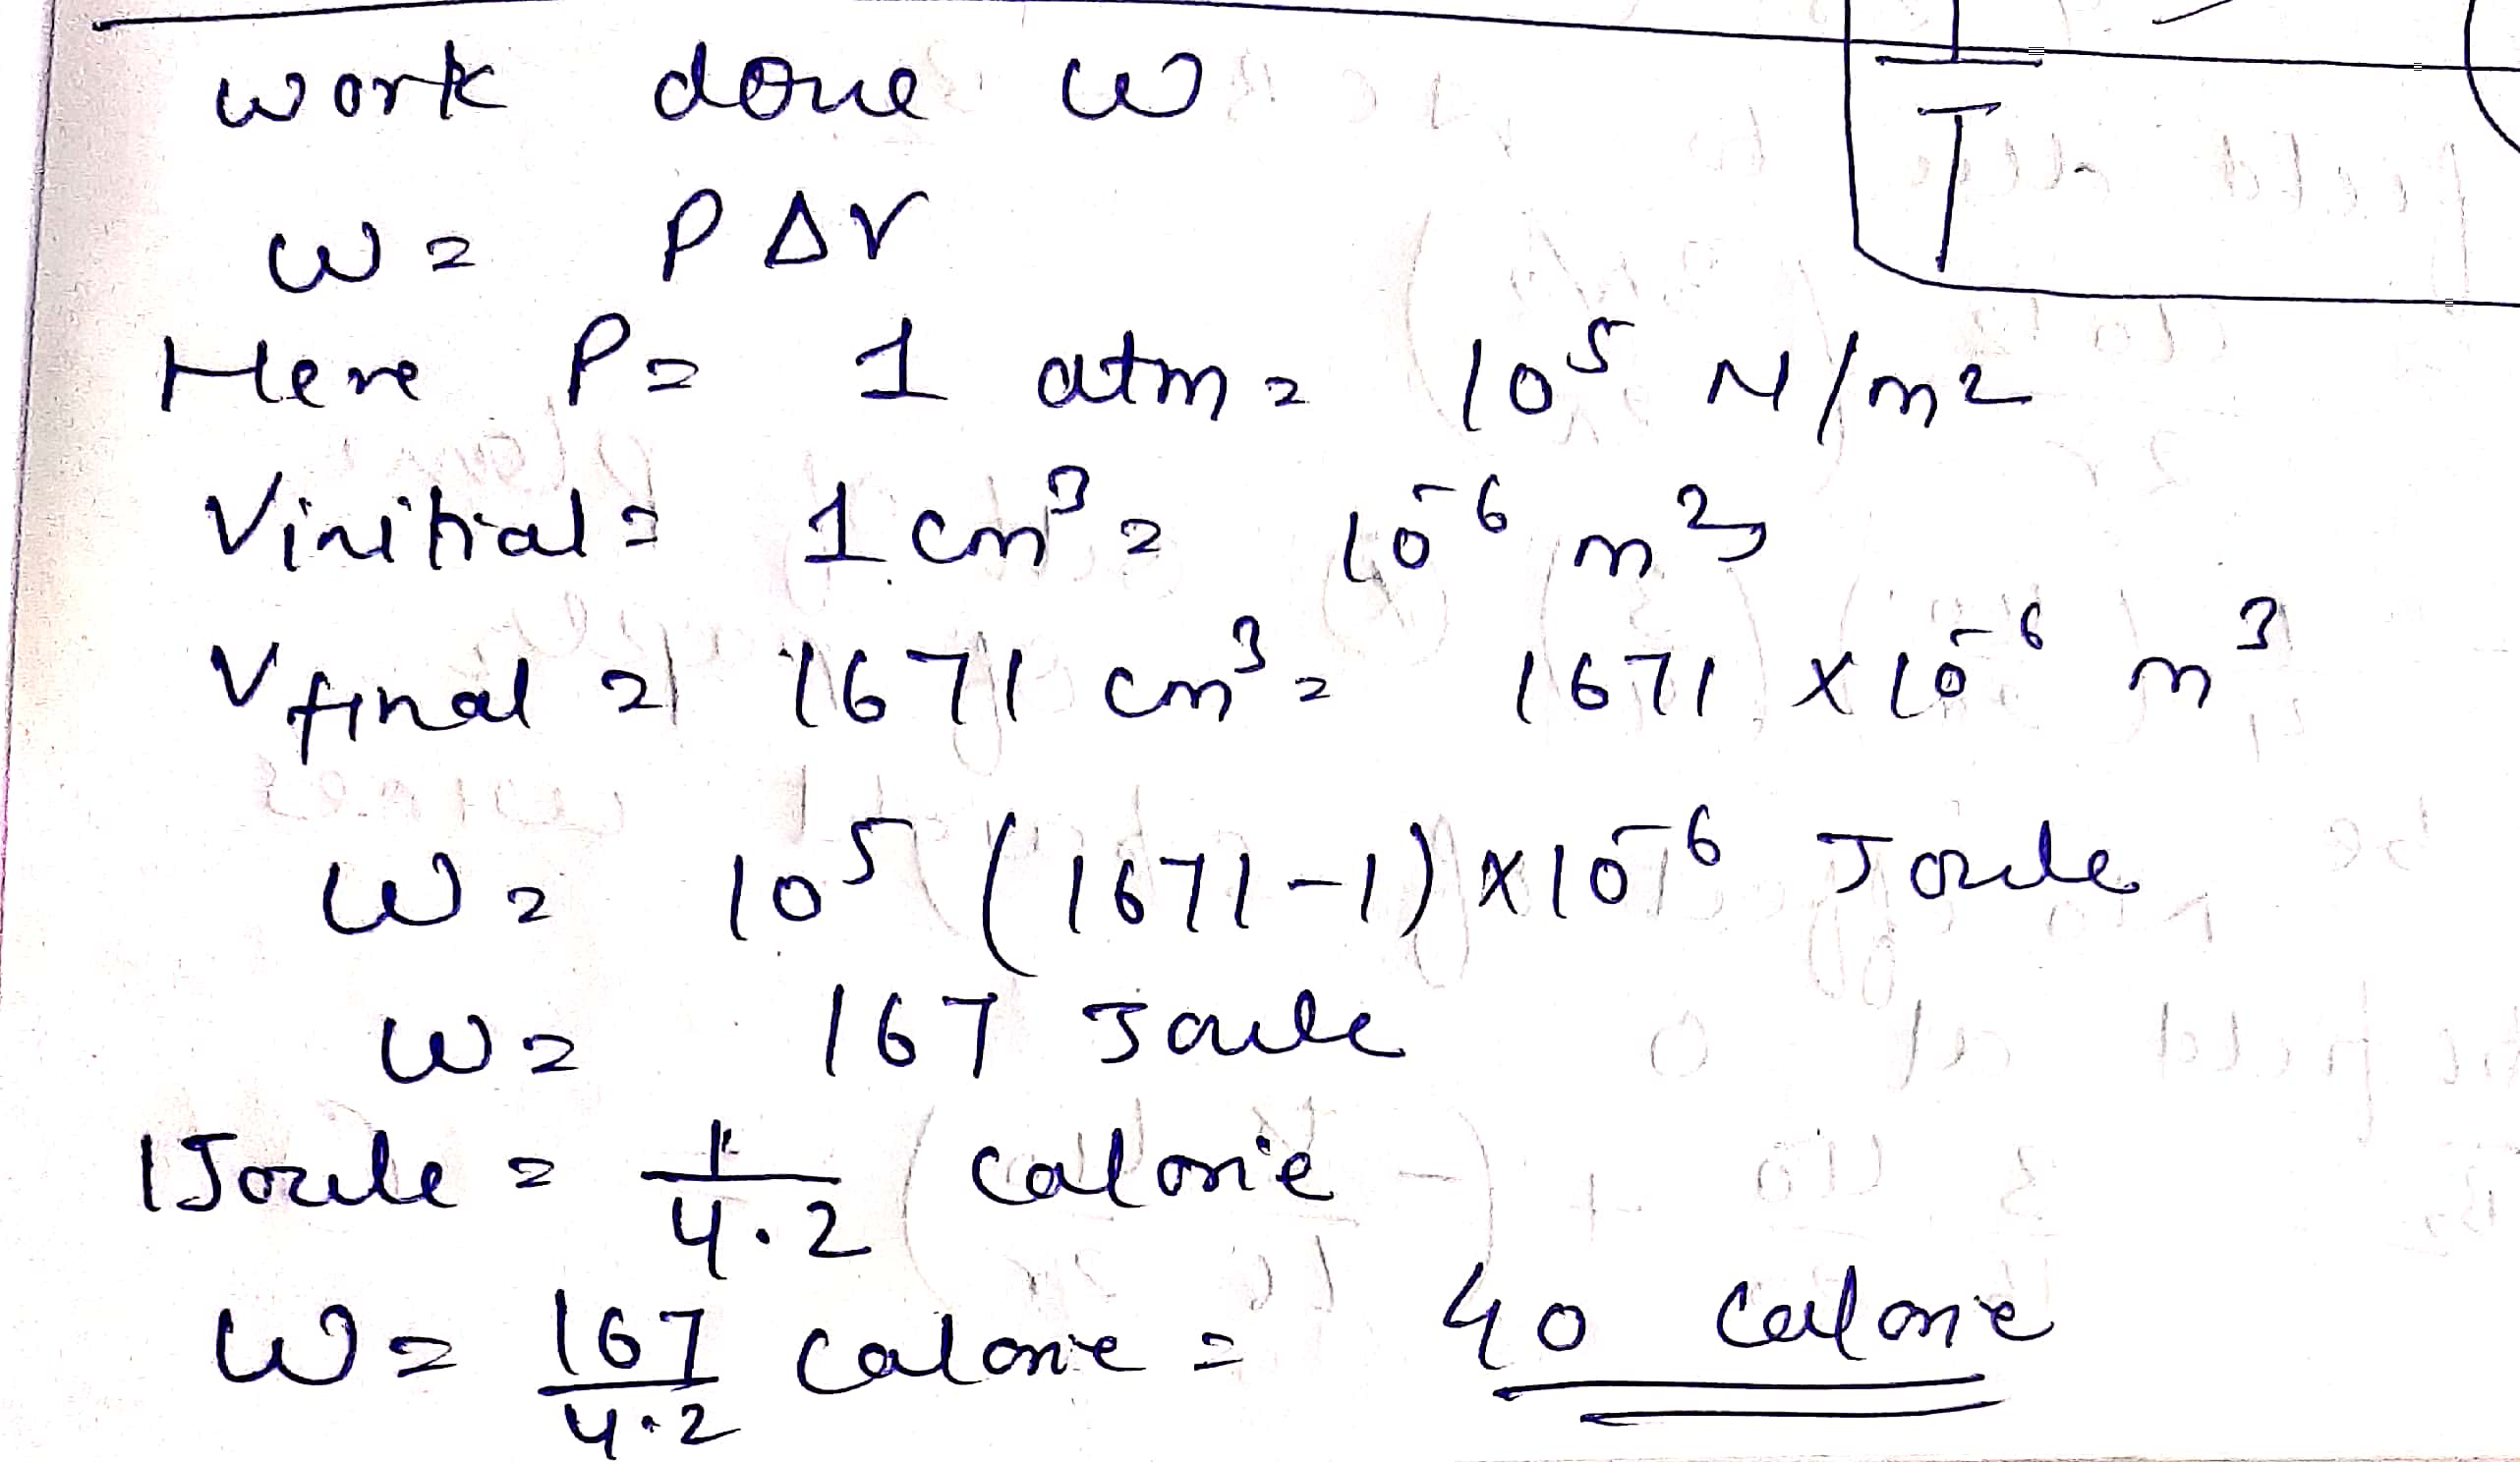 work done w
w = P ΔV
Here P = 1 atm = 10⁵ N/m2
Vinitial = 1 cm³ = 10⁻⁶ m³
Vfinal = 1671 cm³ = 1671 × 10⁻⁶ m³
W = 10⁵ (1671-1) × 10⁻⁶ Joule
W = 167 Joule
1Joule = 1/4.2 calorie
W = 167/4.2 calorie = 40 calorie